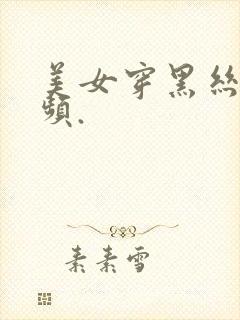 美女穿黑丝
频.
素素雪